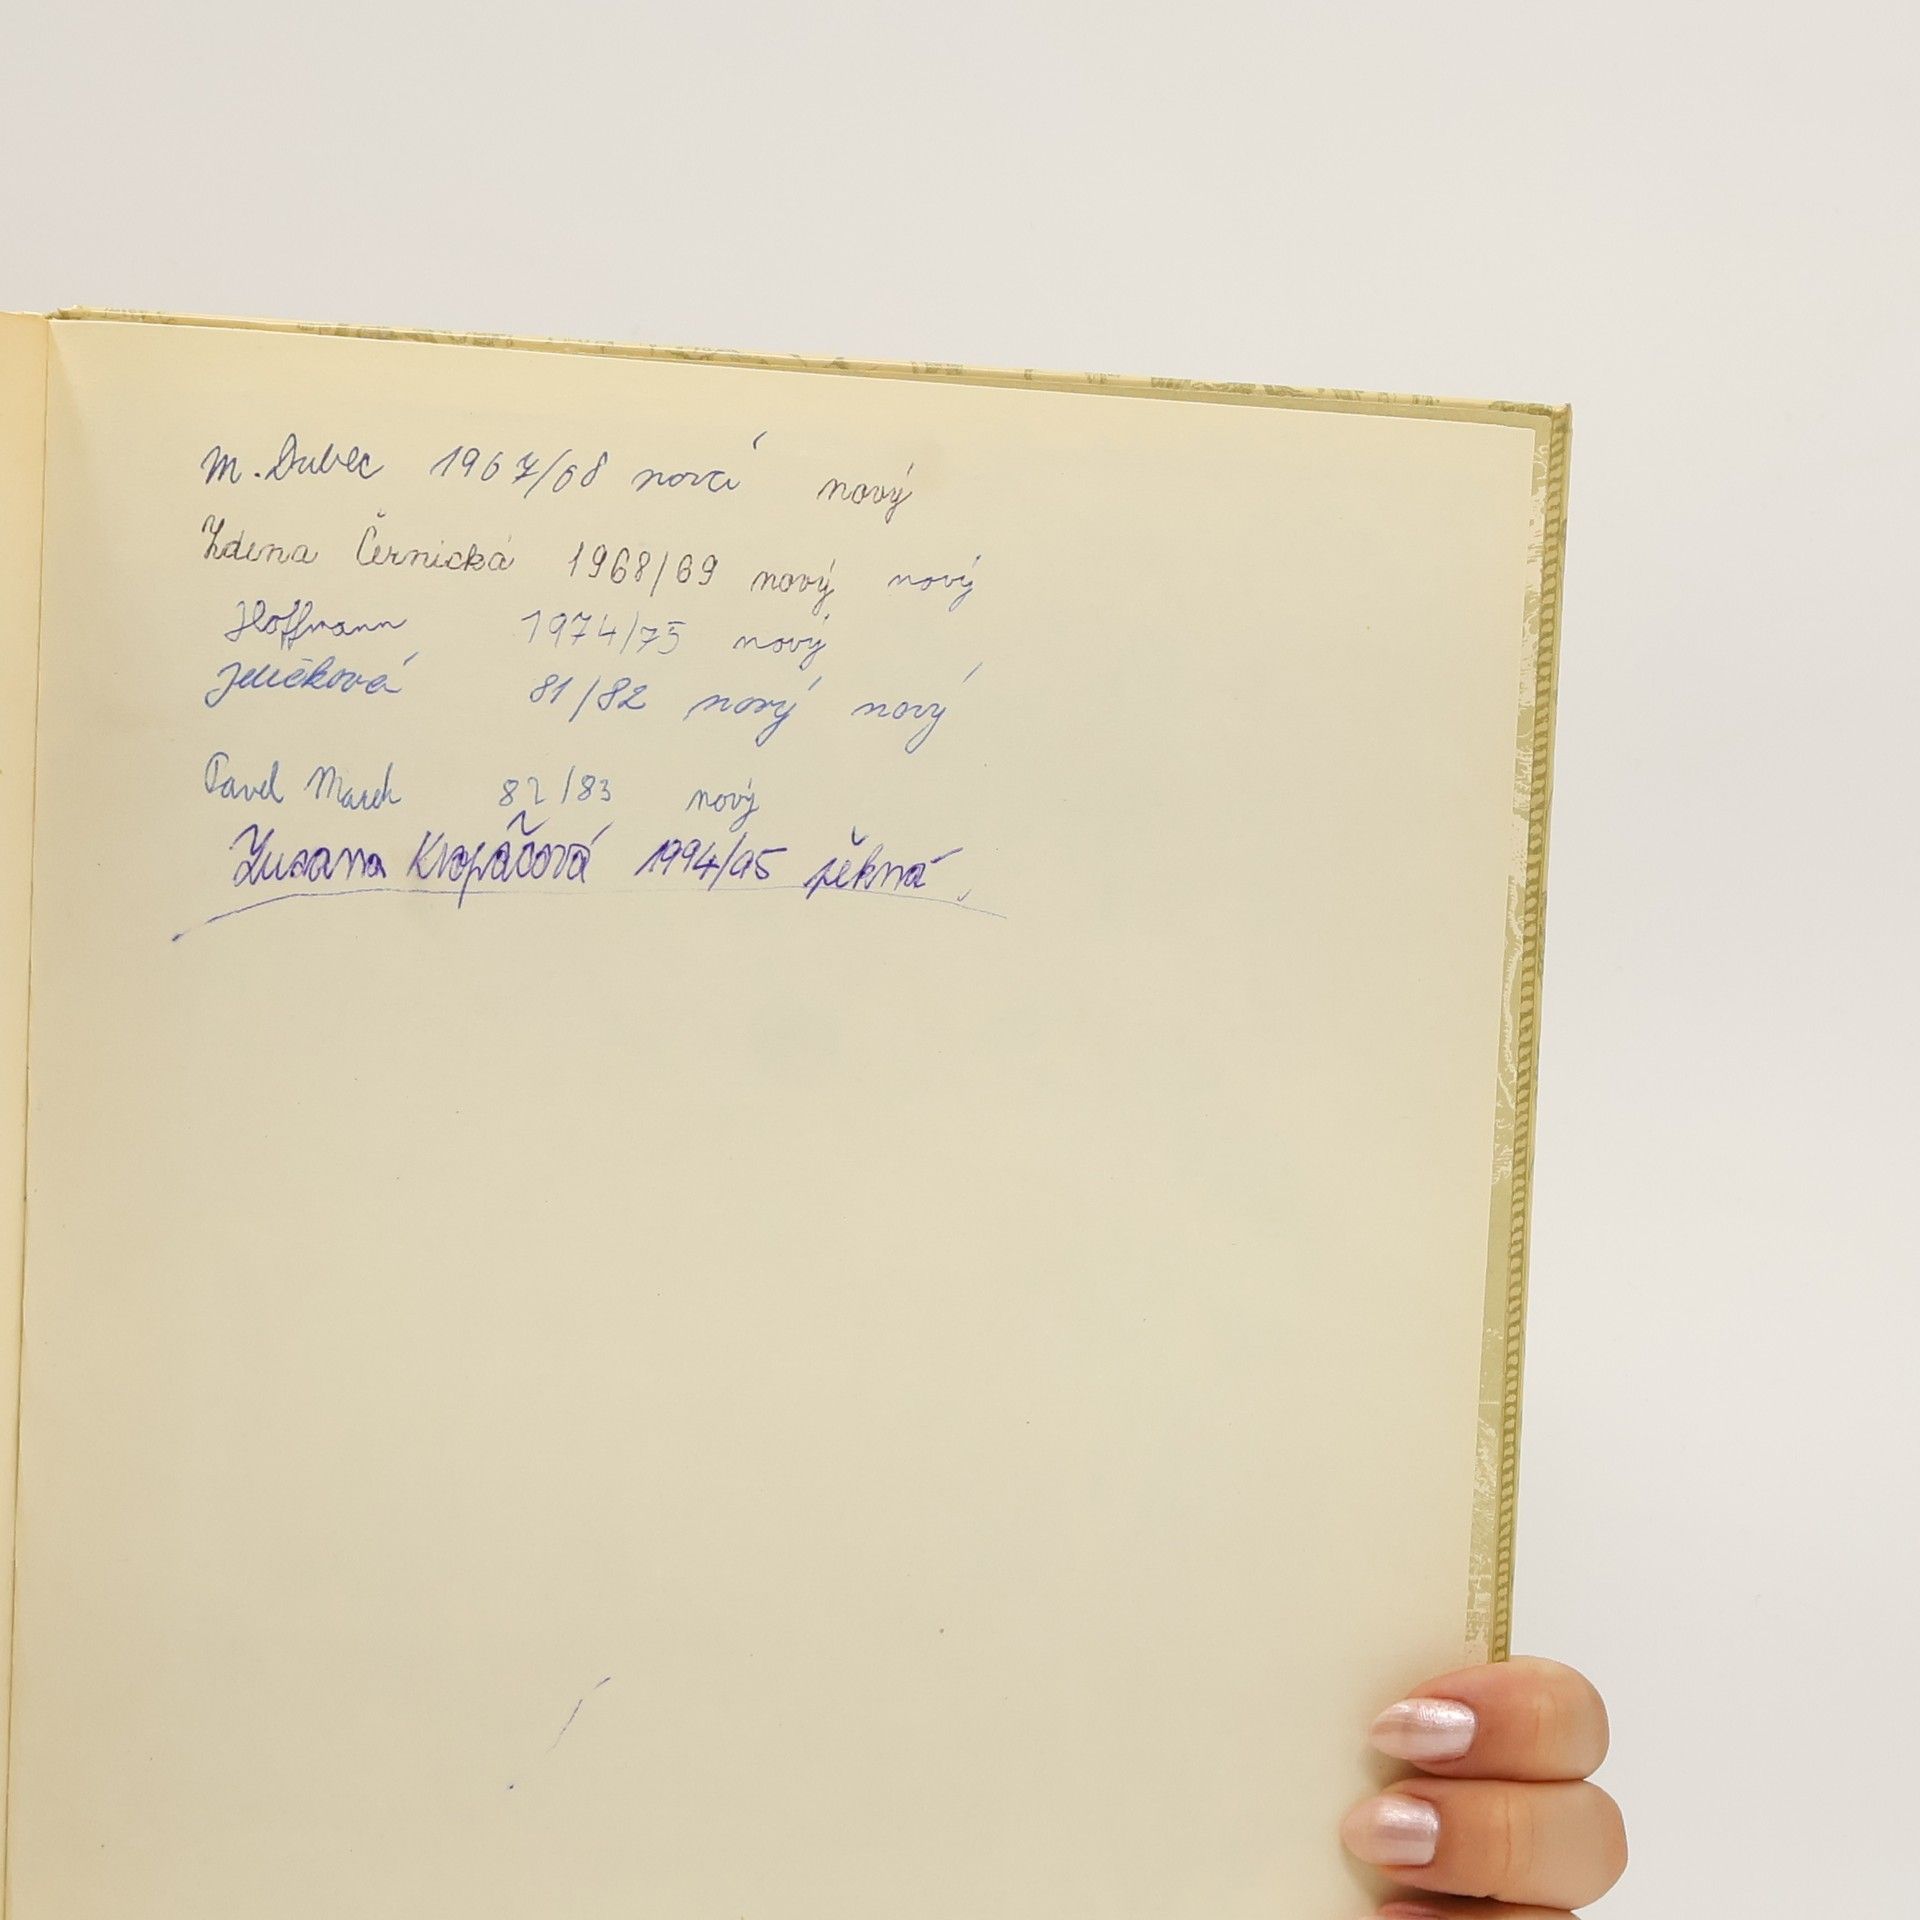 M. Dubec 1967/68 nový
Zdena Černická 1968/69 nový nový
Hoffmann 1974/75 nový
Jeličková 81/82 nový nový
Pavel Marek 82/83 nový
Zuzana Kropáčová 1994/95 pěkná